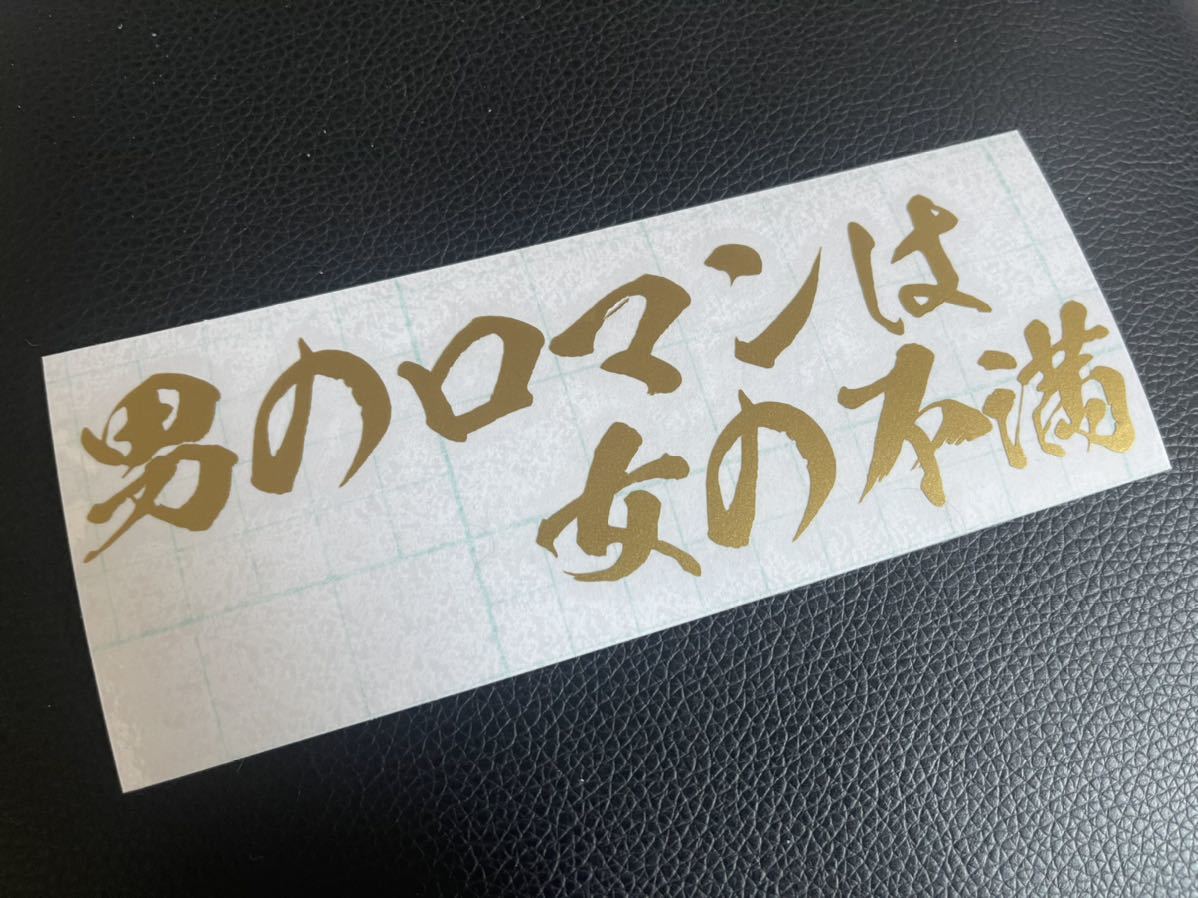 男のロマンは
女の不満